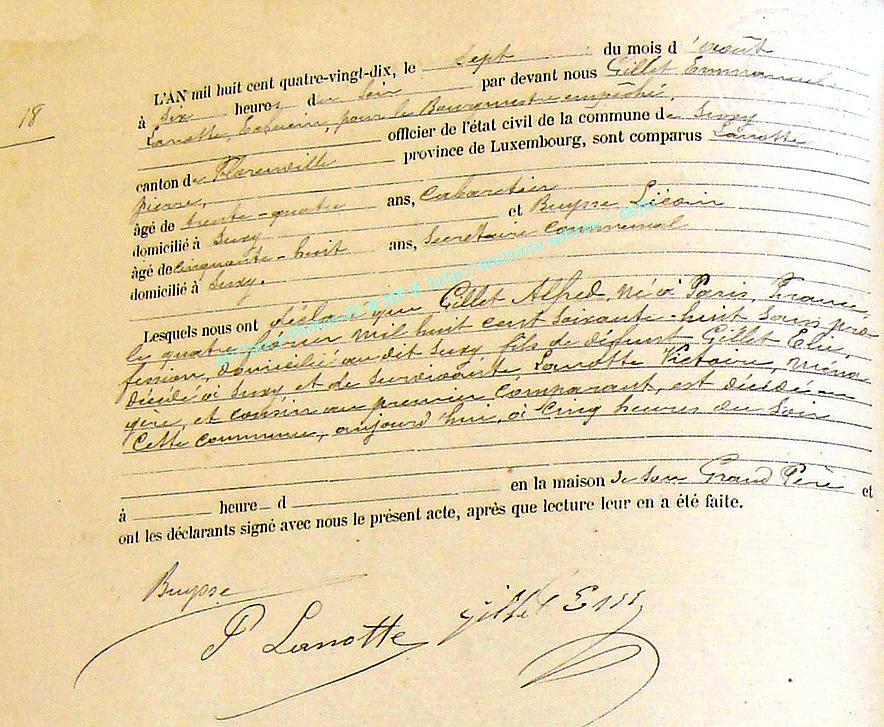 18
L'AN mil huit cent quatre-vingt-dix, le sept du mois d'août
à six heures du soir par devant nous Gillet Emmanuel
Lanotte, Echevin, pour le Bourgmestre empêché,
officier de l'état civil de la commune de Suxy
canton de Florenville province de Luxembourg, sont comparus Lanotte
Pierre,
âgé de trente-quatre ans, Cabaretier
domicilié à Suxy et Buysse
âgé de cinquante-huit ans, Secrétaire communal
domicilié à Suxy.
Lesquels nous ont déclaré que Gillet Alfred, né à Paris, France,
le quatre mil huit cent soixante-huit sans pro
fession, domicilié au dit Suxy fils de défunt Gillet Elie,
décédé à Suxy et de survivante Lanotte Victoire, ména
gère, et cousin au premier comparant, est décédé en
cette commune, aujourd'hui, à cinq heures du soir
à heure d en la maison de son Grand Père et
ont les déclarants signé avec nous le présent acte, après que lecture leur en a été faite.
Buysse
P Lanotte Gillet